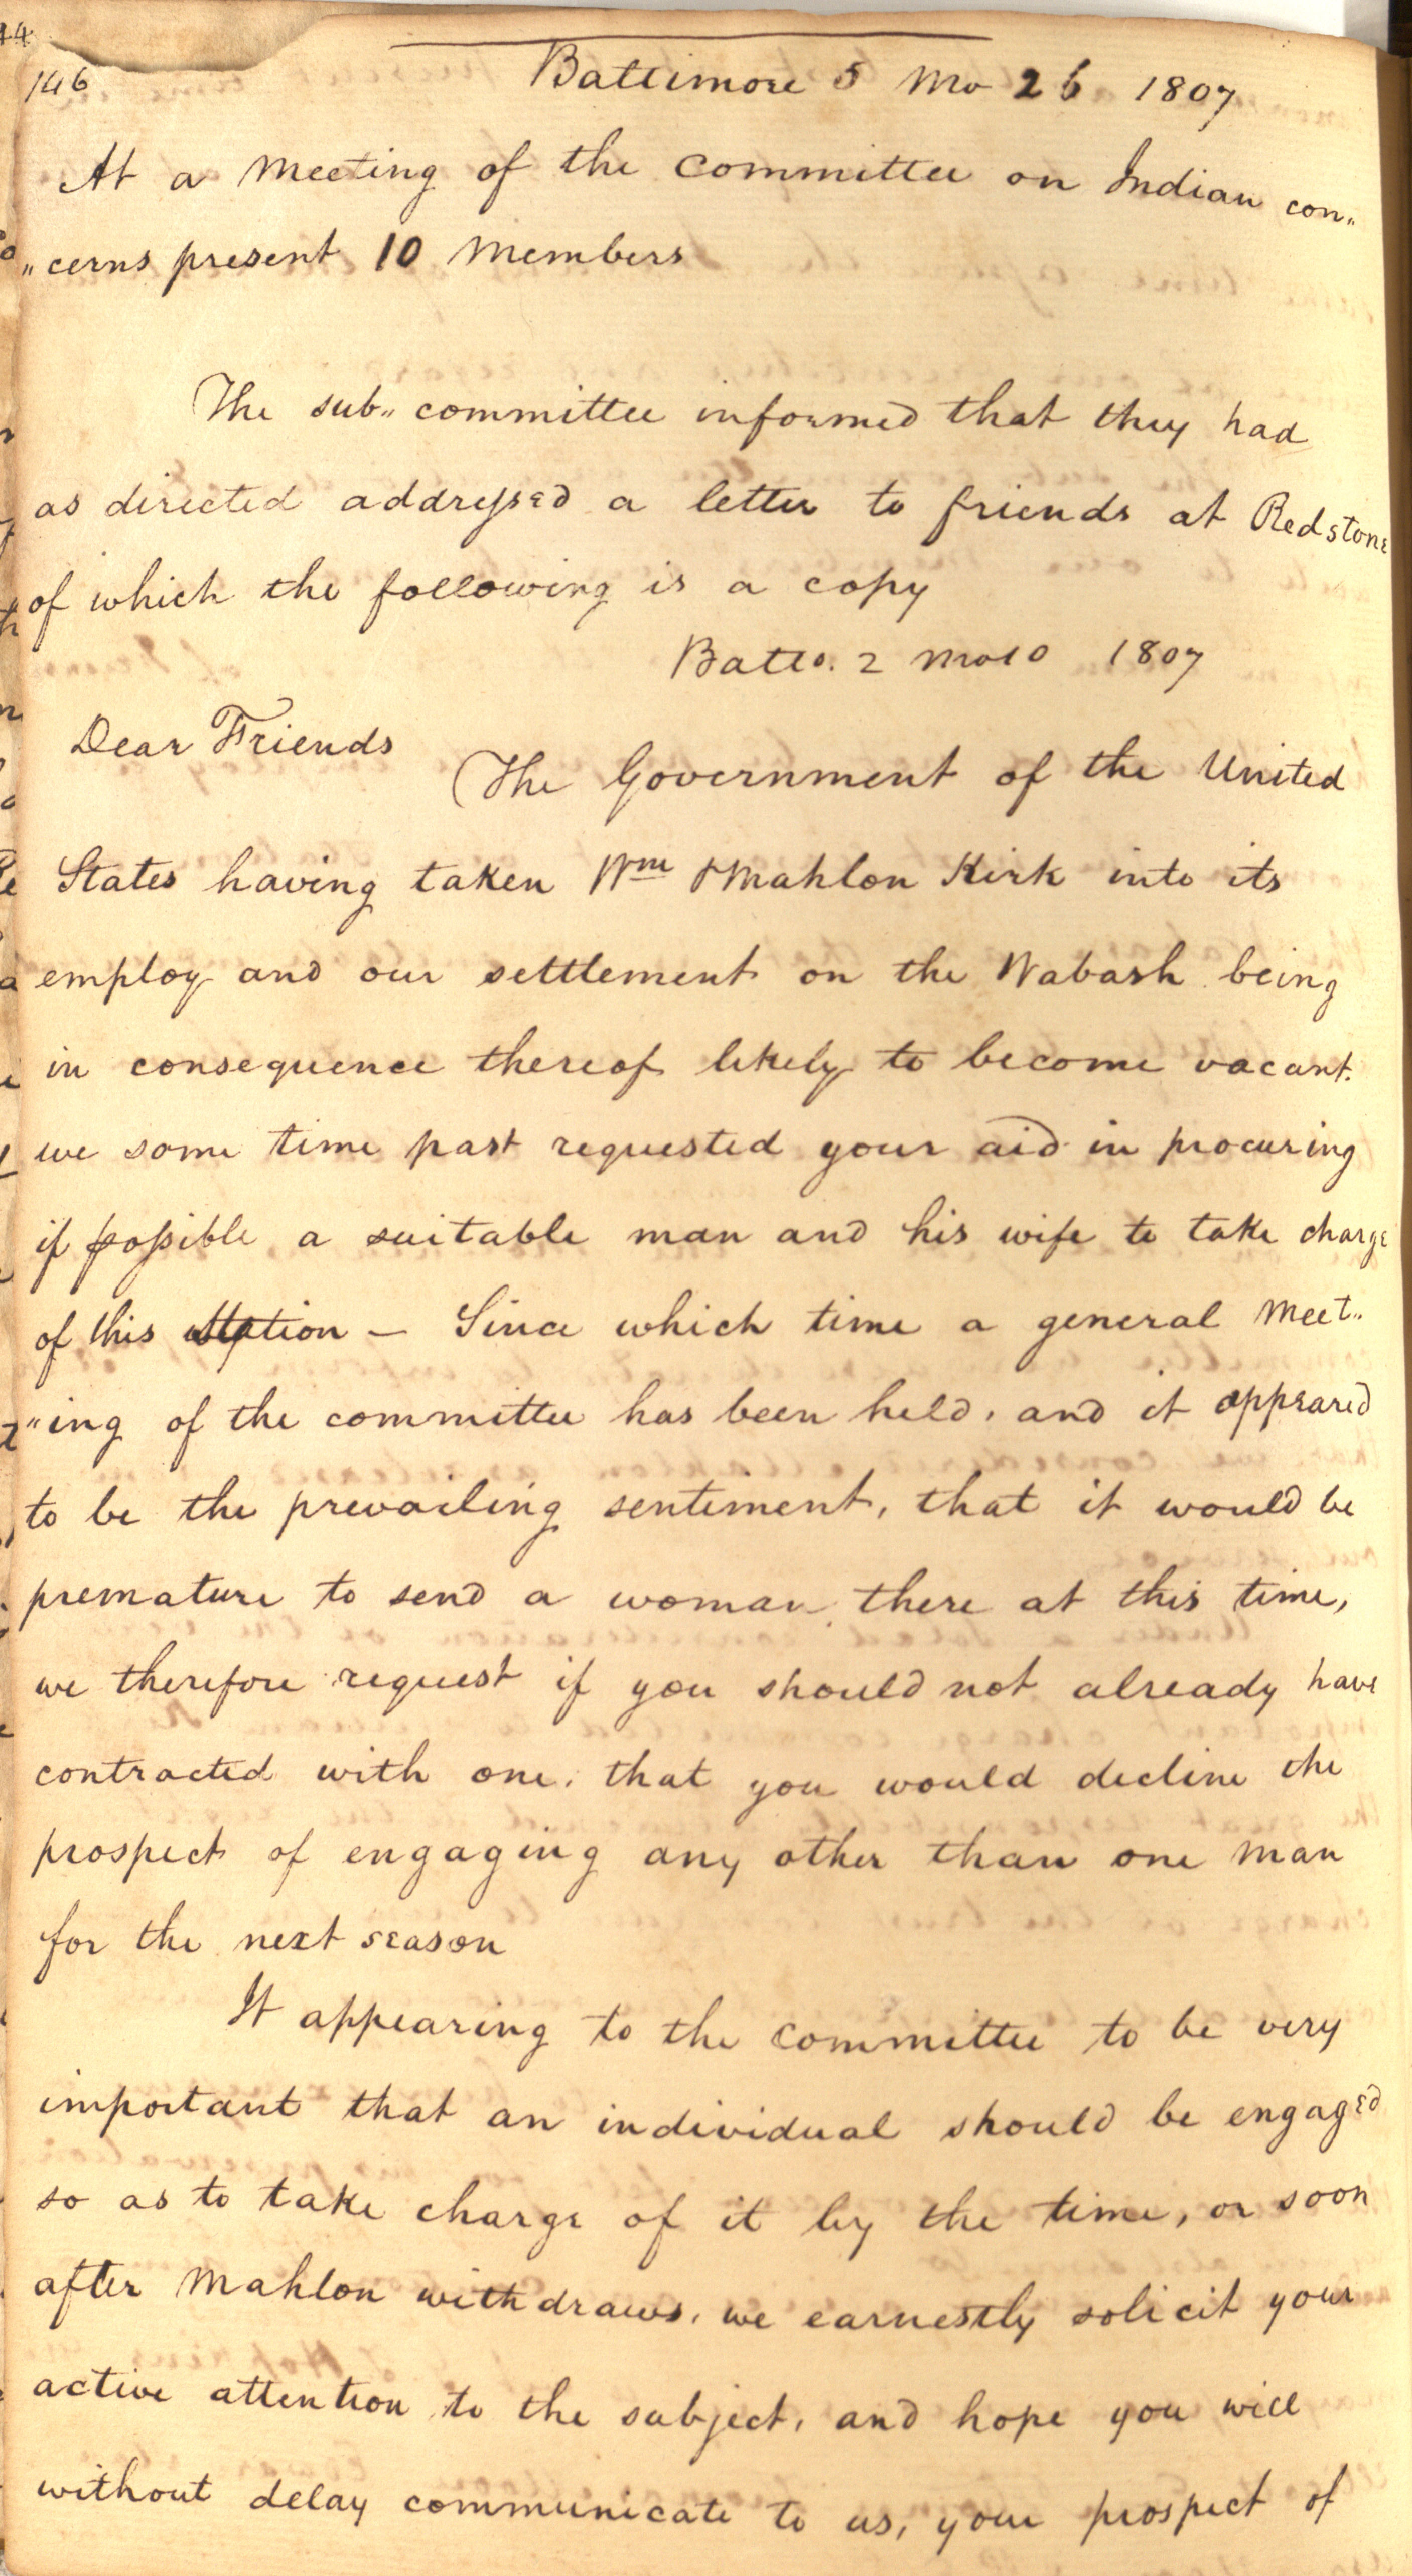 146
Baltimore 5 Mo 26 1807
At a Meeting of the Committee on Indian con„
„cerns present 10 Members
The sub„ committee informed that they had
as directed addressed a letter to friends at Redstone
of which the following is a copy
Balto. 2 mo 10 1807
Dear Friends
The Government of the United
States having taken Wm & Mahlon Kirk into its
employ and our settlement on the Wabash being
in consequence thereof likely to become vacant.
we some time past requested your aid in procuring
if possible a suitable man and his wife to take charge
of this station – Since which time a general Meet„
„ing of the committee has been held, and it appeared
to be the prevailing sentiment, that it would be
premature to send a woman there at this time,
we therefore request if you should not already have
contracted with one, that you would decline the
prospect of engaging any other than one man
for the next season
It appearing to the Committee to be very
important that an individual should be engaged
so as to take charge of it by the time, or soon
after Mahlon withdraws, we earnestly solicit your
active attention to the subject, and hope you will
without delay communicate to us, your prospect of